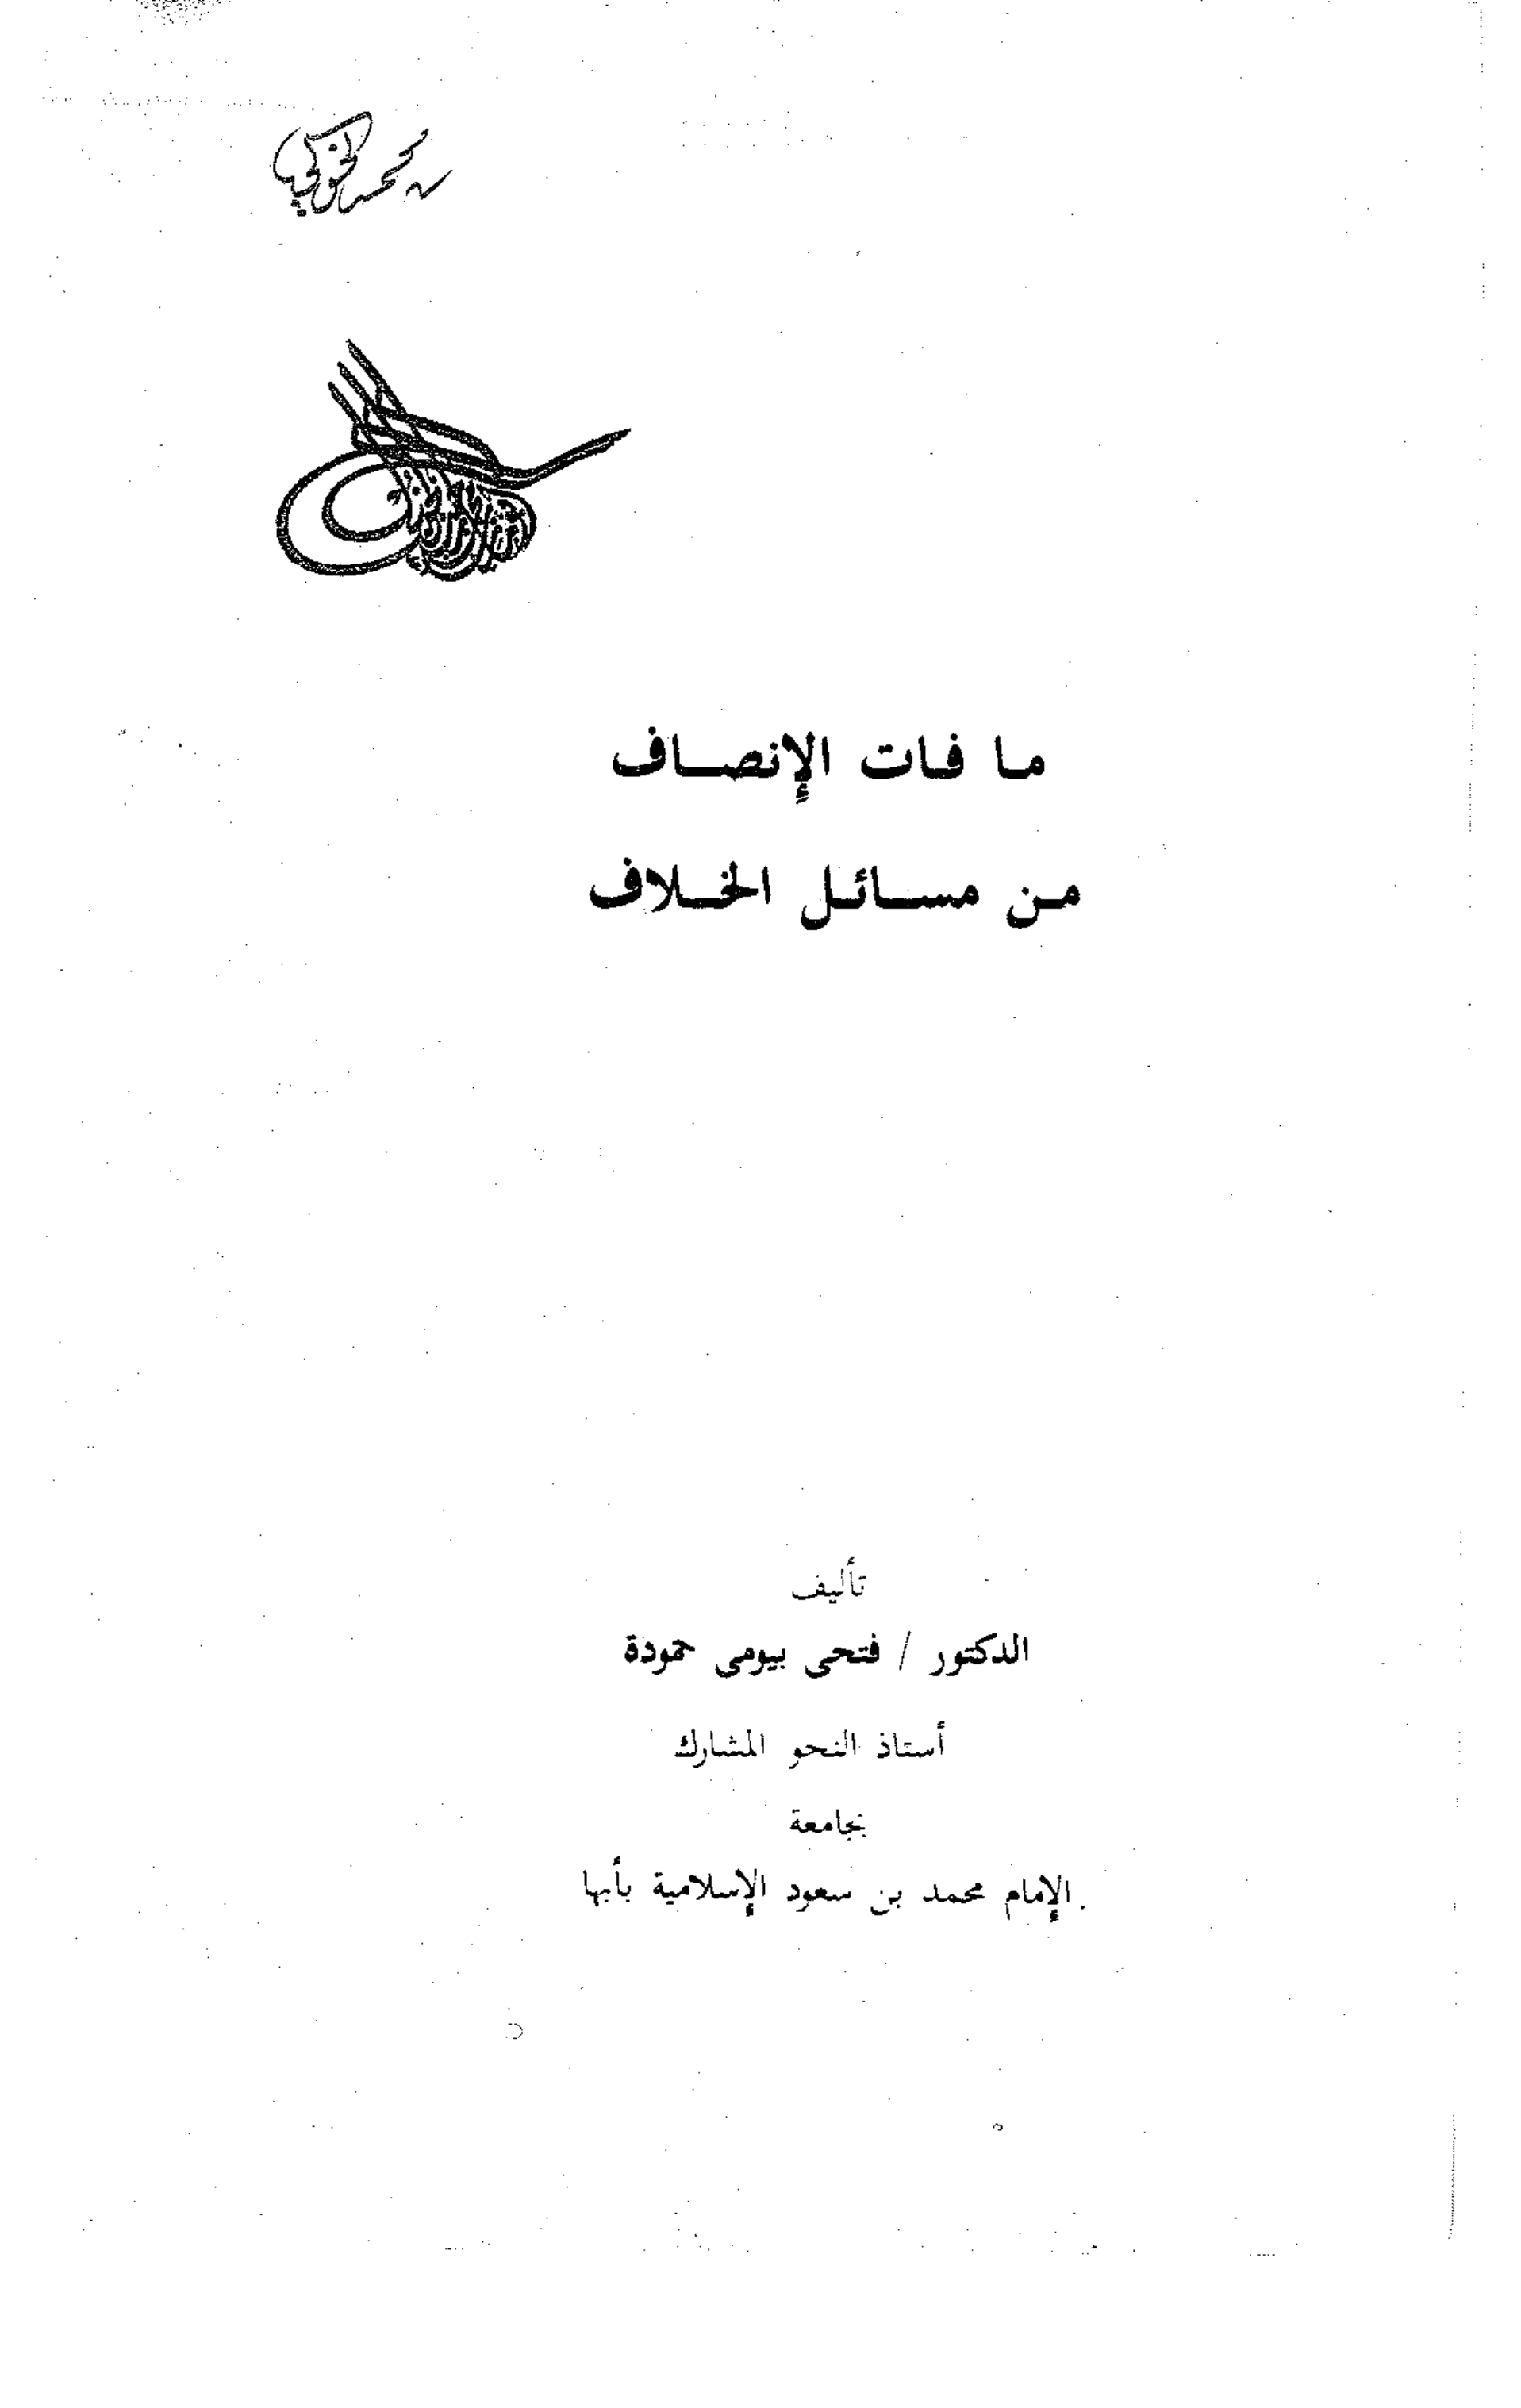 ما فات الإنصاف
من مسائل الخلاف
تأليف
الدكتور / فتحى بيومى حمودة
أستاذ النحو المشارك
بجامعة
الإمام محمد بن سعود الإسلامية بأبها